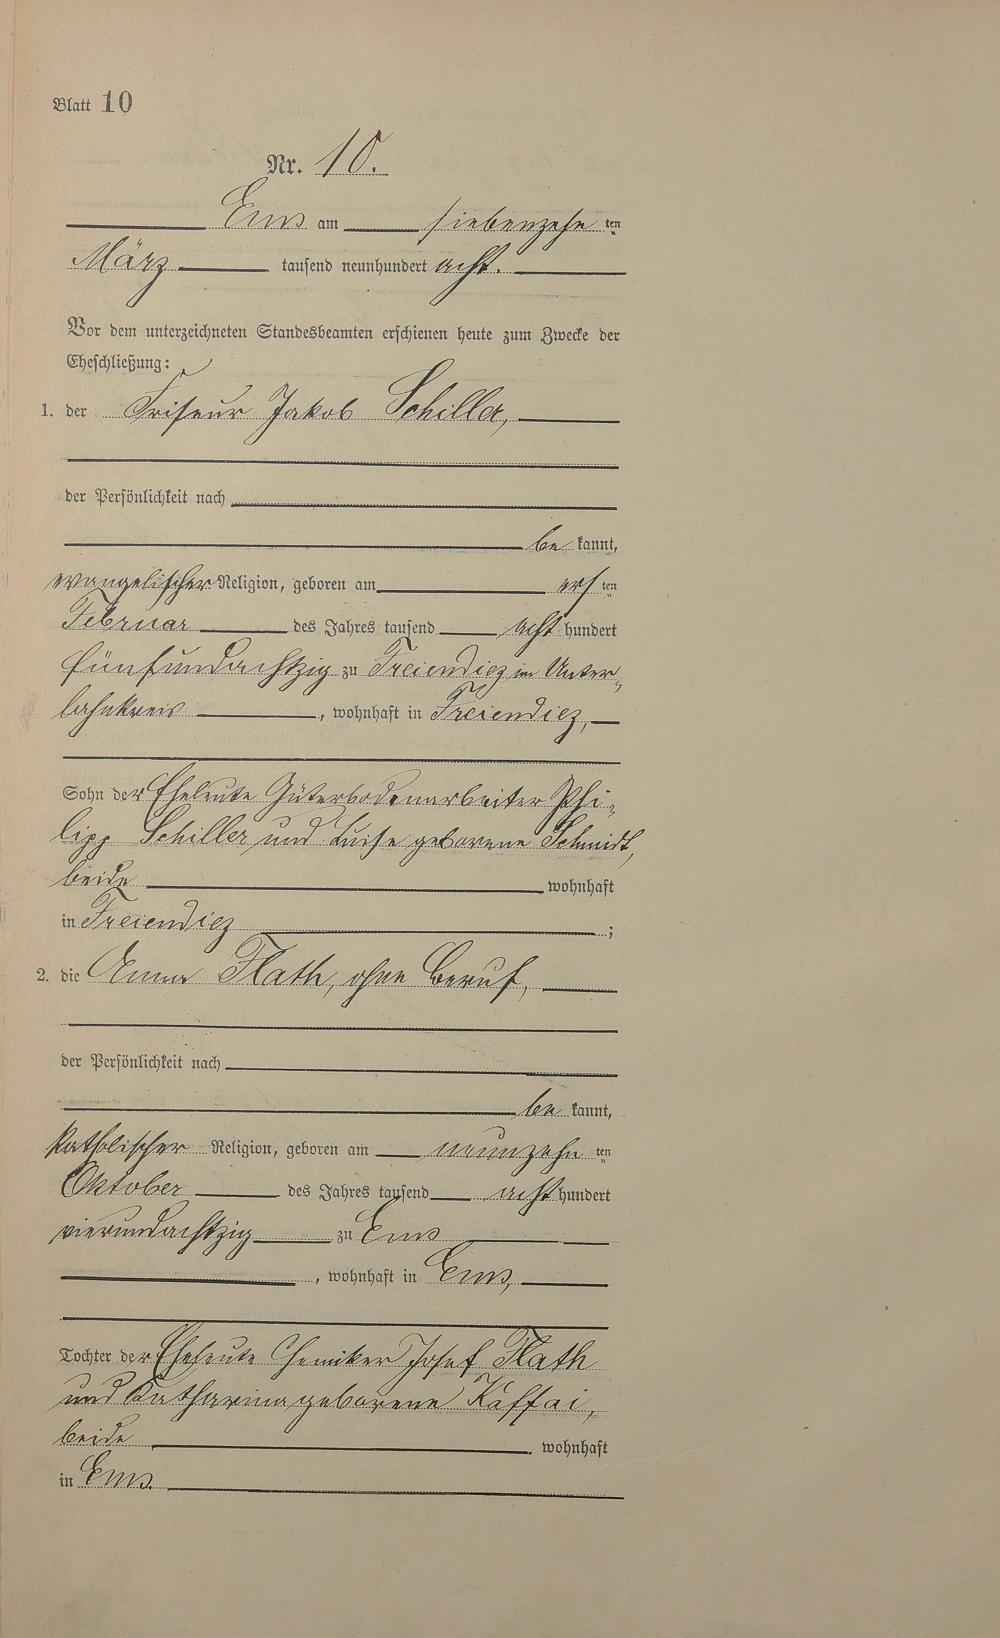 Blatt 10
Nr. 10.
Ems am siebenzehnten
März tausend neunhundert acht.
Vor dem unterzeichneten Standesbeamten erschienen heute zum Zwecke der
Eheschließung:
1. der Friseur Jakob Schiller,
der Persönlichkeit nach
be kannt,
evangelischer Religion, geboren am ersten
Februar des Jahres tausend acht hundert
fünfundachtzig zu Freiendiez im Unter-
lahnkreis, wohnhaft in Freiendiez,
Sohn der Eheleute Güterbodenarbeiter Phi-
lipp Schiller und Luise geborene Schmidt,
beide wohnhaft
in Freiendiez;
2. die Anna Flath, ohne Beruf,
der Persönlichkeit nach
be kannt,
katholischer Religion, geboren am neunzehnten
Oktober des Jahres tausend acht hundert
vierundachtzig zu Ems
, wohnhaft in Ems,
Tochter der Eheleute Chemiker Josef Flath
und Katharina geborene Kaffai,
beide wohnhaft
in Ems.